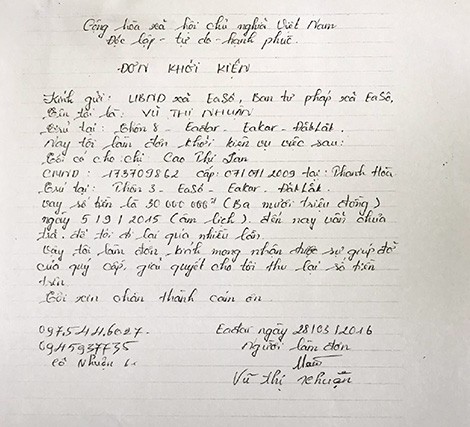 Cộng hòa xã hội chủ nghĩa Việt Nam
Độc lập - tự do - hạnh phúc.
ĐƠN KHỞI KIỆN
Kính gửi: UBND xã EaSô, Ban tư pháp xã EaSô.
Tên tôi là: VŨ THỊ NHUẬN
Trú tại: Thôn 8 - Eadar - Eakar - ĐăkLăk.
Nay tôi làm đơn khởi kiện vụ việc sau:
Tôi có cho chị Cao Thị
CMND: 173709862 cấp: 07/07/2009 tại: Thanh Hóa
Trú tại: Thôn 3 - EaSô - Eakar - ĐăkLăk.
vay số tiền là 30 000 000đ (Ba mươi triệu đồng)
ngày 5/9/2015 (âm lịch). đến nay vẫn chưa
trả. để tôi đi lại quá nhiều lần.
Vậy tôi làm đơn, kính mong nhận được sự giúp đỡ
của quý cấp, giải quyết cho tôi thu lại số tiền
trên.
Tôi xin chân thành cám ơn.
Eadar ngày 28/03/2016
Người làm đơn
Vũ Thị Nhuận
0945937735
cô Nhuận